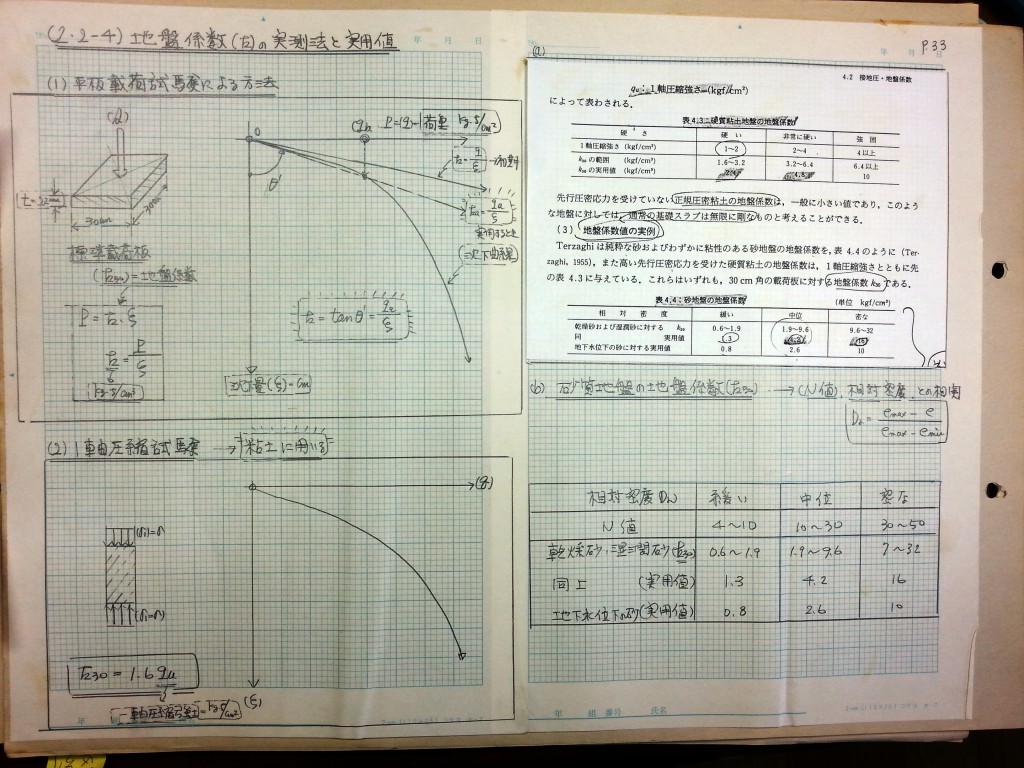 (2.2-4) 地盤係数(k)の実測法と実用値
(1) 平板載荷試験による方法
30cm
30cm
標準載荷板
(k30)=地盤係数
P = k・ξ
k = P/ξ
kg・f/cm³
0
θ
k = tanθ = qu/ξ
沈下量(ξ)=cm
(2) 1軸圧縮試験 → 粘土に用いる
(q)
k30 = 1.6qu
(ξ)
年 月 日
P.33
(a)
4.2 接地圧・地盤係数
qu:1軸圧縮強さ (kgf/cm²)
によって表わされる.
表4.3 硬質粘土地盤の地盤係数
硬さ 硬い 非常に硬い 強固
1軸圧縮強さ (kgf/cm²) 1~2 2~4 4以上
k30の範囲 (kgf/cm³) 1.6~3.2 3.2~6.4 6.4以上
k30の実用値 (kgf/cm³) 2.4 4.8 10
先行圧密応力を受けていない正規圧密粘土の地盤係数は,一般に小さい値であり,このよう
な地盤に対しては,通常の基礎スラブは無限に剛なものと考えることができる.
(3) 地盤係数値の実例
Terzaghiは純粋な砂およびわずかに粘性のある砂地盤の地盤係数を,表4.4のように (Ter-
zaghi, 1955),また高い先行圧密応力を受けた硬質粘土の地盤係数は,1軸圧縮強さとともに先
の表4.3に与えている.これらはいずれも,30cm角の載荷板に対する地盤係数k30である.
表4.4:砂地盤の地盤係数 (単位 kgf/cm³)
相対密度 緩い 中位 密な
乾燥砂および湿潤砂に対する k30 0.6~1.9 1.9~9.6 9.6~32
同 実用値 1.3 4.2 16
地下水位下の砂に対する実用値 0.8 2.6 10
(b) 砂質地盤の地盤係数(k30) → (N値), 相対密度, との相関
Dr = (emax - e)/(emax - emin)
相対密度Dr 緩い 中位 密な
N値 4~10 10~30 30~50
乾燥砂・湿潤砂(k30) 0.6~1.9 1.9~9.6 9~32
同上 (実用値) 1.3 4.2 16
地下水位下の砂(実用値) 0.8 2.6 10
年 組 番号 氏名